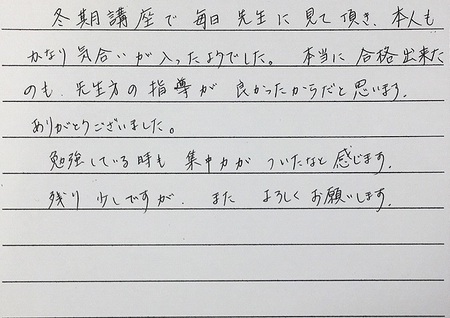 冬期講座で毎日先生に見て頂き、本人も
かなり気合いが入ったようでした。 本当に合格出来た
のも、先生方の指導が良かったからだと思います。
ありがとうございました。
勉強している時も集中力がついたなと感じます。
残り少しですが、またよろしくお願いします。